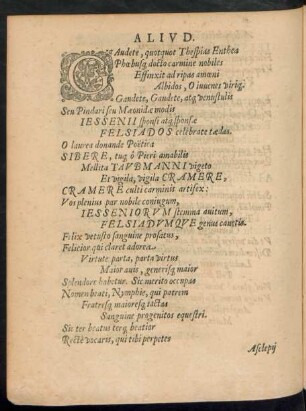 ALIVD.
GAudete, quotquot Thespias Enthea
Phœbusq; docto carmine nobiles
Effinxit ad ripas amœni
Albidos, O iuuenes virig;
Gaudete, Gaudete, atq; venustulis
Seu Pindari seu Mæonidæ modis
IESSENII sponsi atq; sponsæ
FELSIADOS celebrate tædas.
O laurea donande Poëtica
SIBERE, tuq; ô Pieri amabilis
Mellita TAVBMANNI vigeto
Et vigila, vigila CRAMERE,
CRAMERE culti carminis artifex:
Vos plenius par nobile coniugum,
IESSENIORVM stemma auitum,
FELSIADVMQVE genus canatis.
Felix vetusto sanguine prosatus,
Felicior qui claret adorea.
Virtute parta, parta virtus
Maior auis, generisq; maior
Splendore habetur. Sic merito occupas
Nomen beati, Nymphie, qui patrem
Fratresq; maioresq; iactas
Sanguine progenitos equestri.
Sis ter beatus terq; beatior
Rectè vocaris, qui tibi perpetes
Asclepij